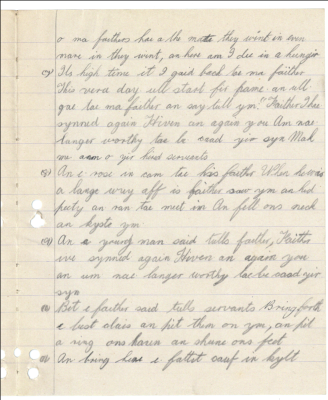 o ma faithers hae a the mate they went in even
mare in they went, an here am I dee in a hunger
Its high time it I gaed back be ma faither
This vera day ull start fir fame an all
gae tae ma faither an say tull ym! Faither I hee
synned again Hiven an again you Am nae
langer worthy tae be caad yir syn Mak
me o yir hired servants
An e rose in cam tee his faither When he was
a lange wey aff is faither saw ym an hid
peety an ran tae meet im An fell ons neck
an kysste ym
An e young man said tulls faither, Faither
ive synned again Hiven an again you
an um nae langer worthy tae be caad yir
syn
Bit e faither said tulls servants Bring forth
e best claes an pit them on ym, an pit
a ring ons haun an shune ons feet
An bring here e fattet cauf in kyllt